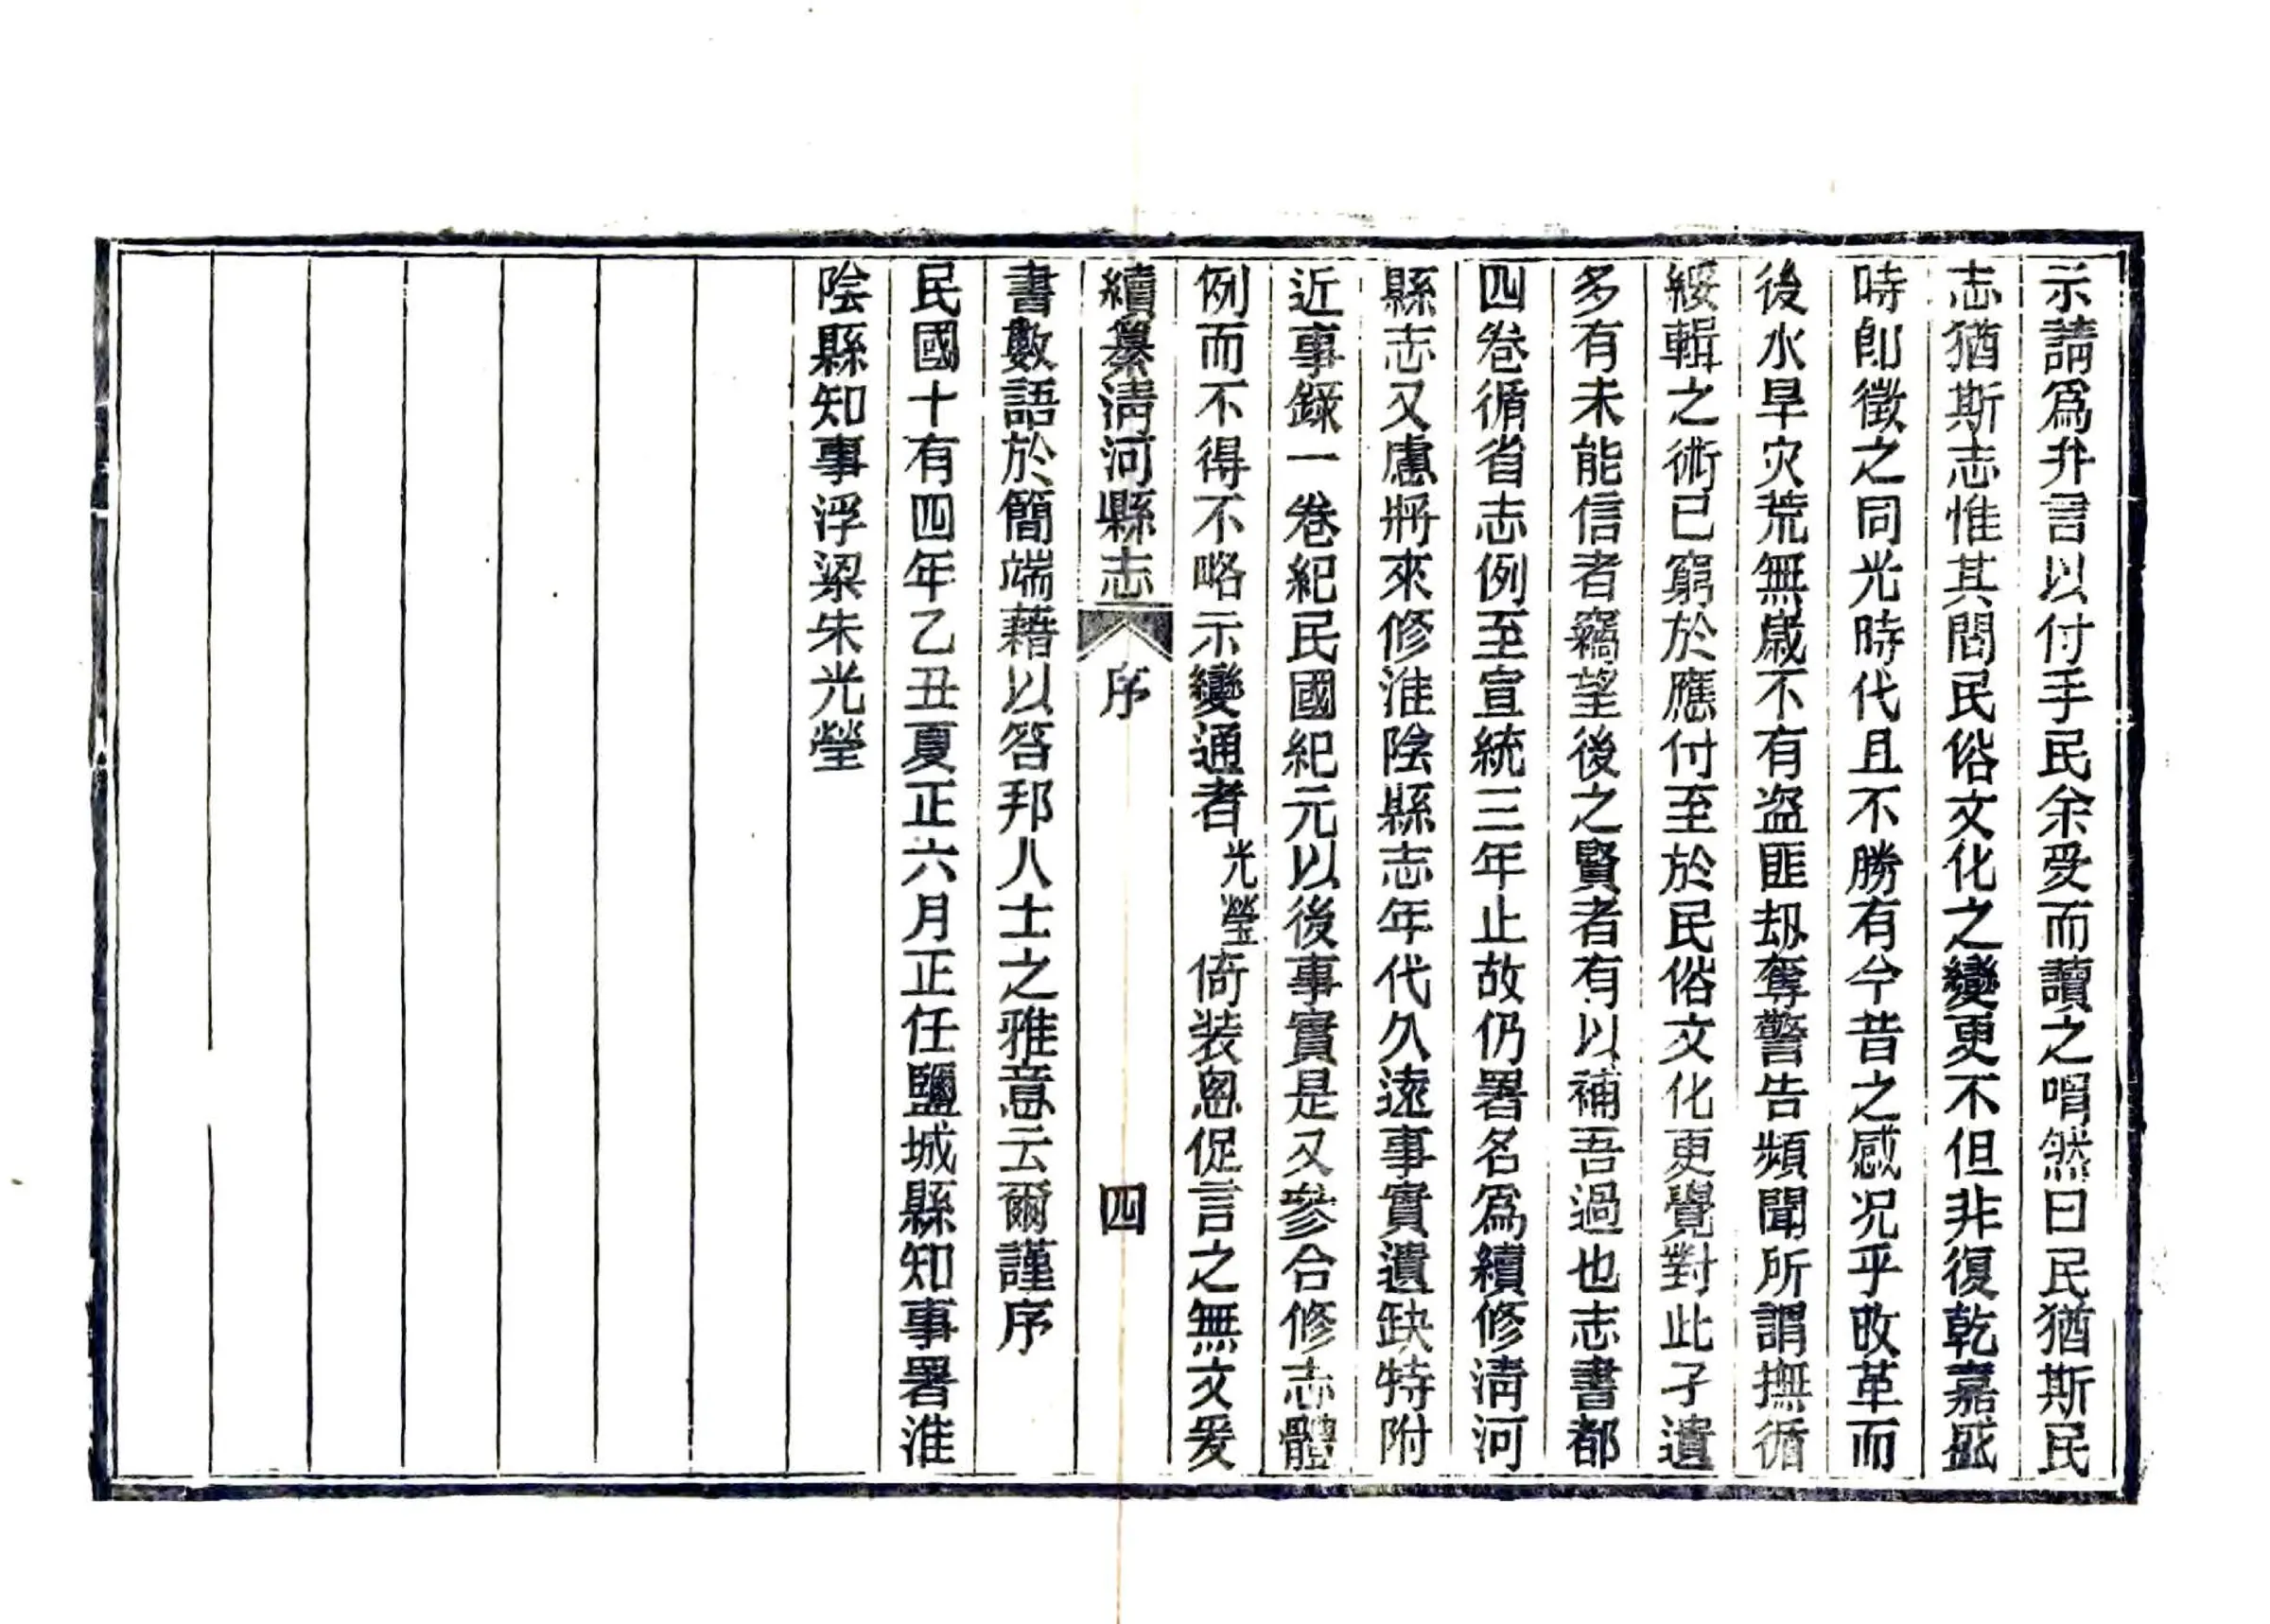 示請爲弁言以付手民余受而讀之喟然曰民猶斯民
志猶斯志惟其間民俗文化之變更不但非復乾嘉盛
時卽徵之同光時代且不勝有今昔之感况乎改革而
後水旱灾荒無歲不有盗匪刧奪警告頻聞所謂撫循
綏輯之術已窮於應付至於民俗文化更覺對此孑遺
多有未能信者竊望後之賢者有以補吾過也志書都
四卷循省志例至宣統三年止故仍署名爲續修清河
縣志又慮將來修淮陰縣志年代久遠事實遺缺特附
近事錄一卷紀民國紀元以後事實是又參合修志體
例而不得不略示變通者光瑩倚装怱促言之無文爰
續纂清河縣志 序 四
書數語於簡端藉以答邦人士之雅意云爾謹序
民國十有四年乙丑夏正六月正任鹽城縣知事署淮
陰縣知事浮梁朱光瑩